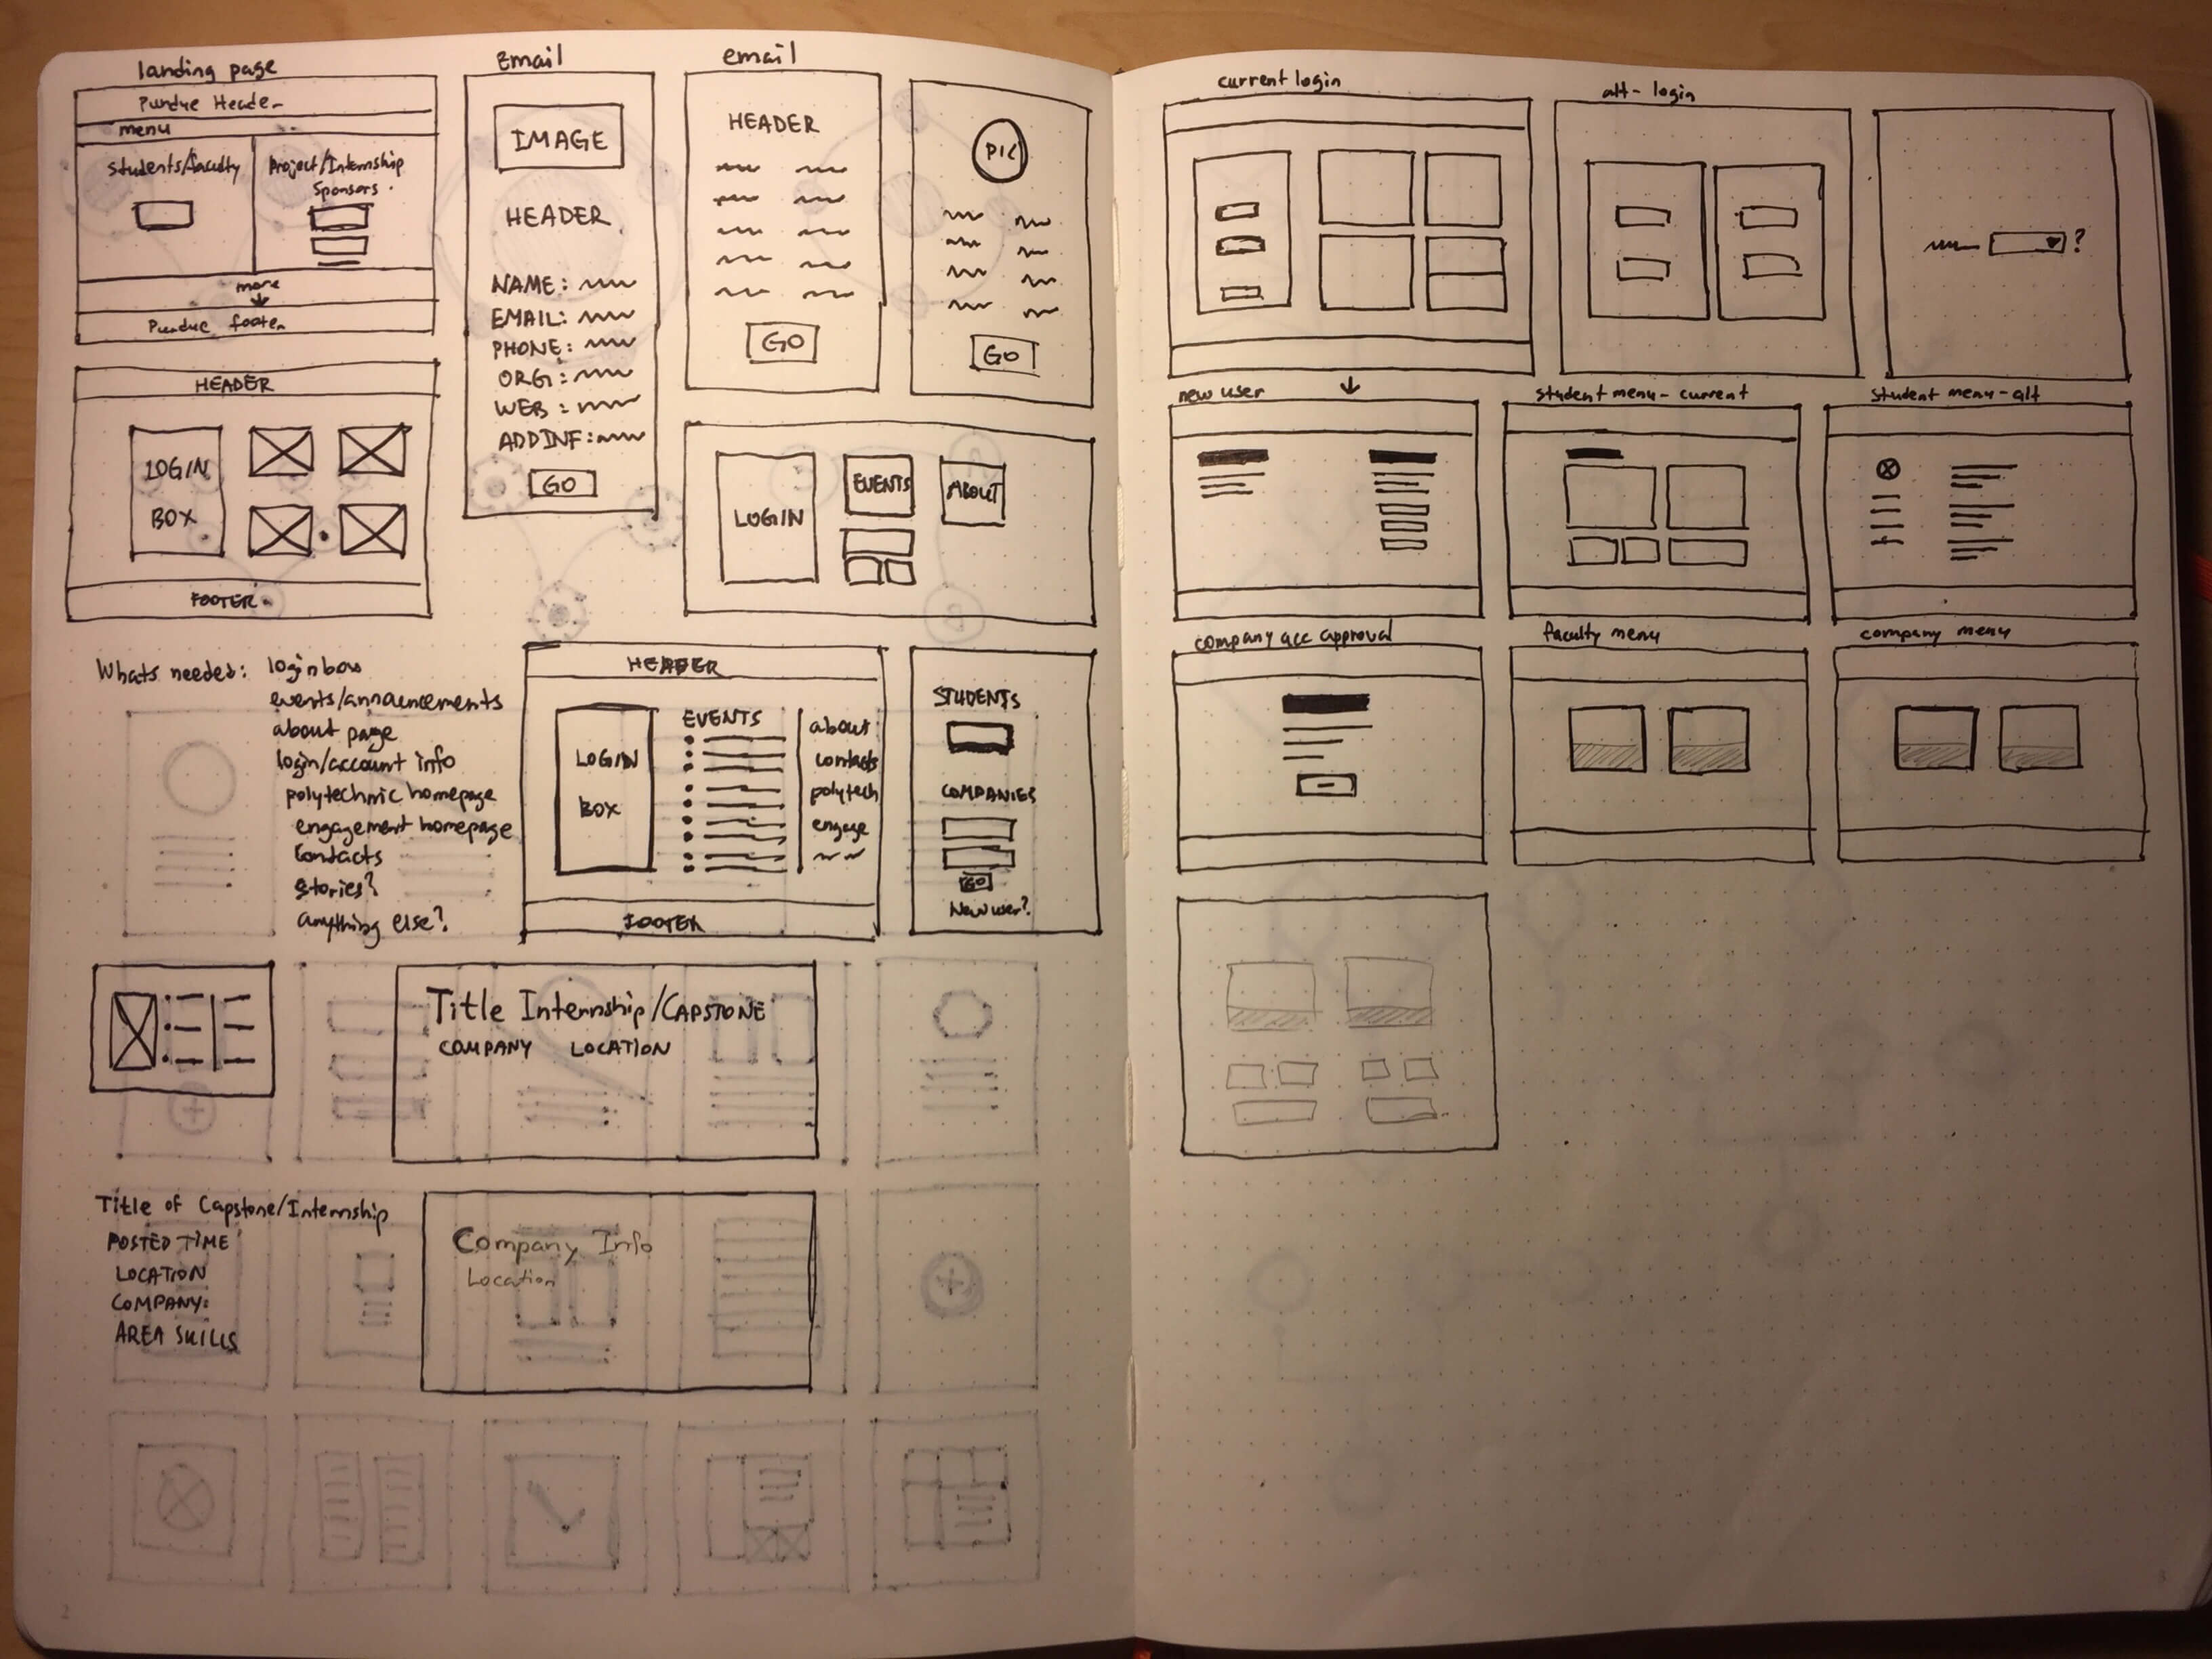 landing page
Purdue Header
menu
Students/faculty
Project/Internship
Sponsors
more
Purdue footer
Email
IMAGE
HEADER
NAME:
EMAIL:
PHONE:
ORG:
WEB:
ADDINF:
GO
email
HEADER
GO
PIC
GO
HEADER
LOGIN
BOX
FOOTER
LOGIN
EVENTS
ABOUT
Whats needed: login box
events/announcements
about page
login/account info
polytechnic homepage
engagement homepage
contacts
stories?
anything else?
HEADER
LOGIN
BOX
EVENTS
about
contacts
polytech
engage
FOOTER
STUDENTS
COMPANIES
GO
New user?
Title Internship/CAPSTONE
COMPANY LOCATION
Title of Capstone/Internship
POSTED TIME
LOCATION
COMPANY:
AREA SKILLS
Company Info
Location
2
current login
alt-login
?
new user
student menu - current
student menu - alt
company acc approval
faculty menu
company menu
3